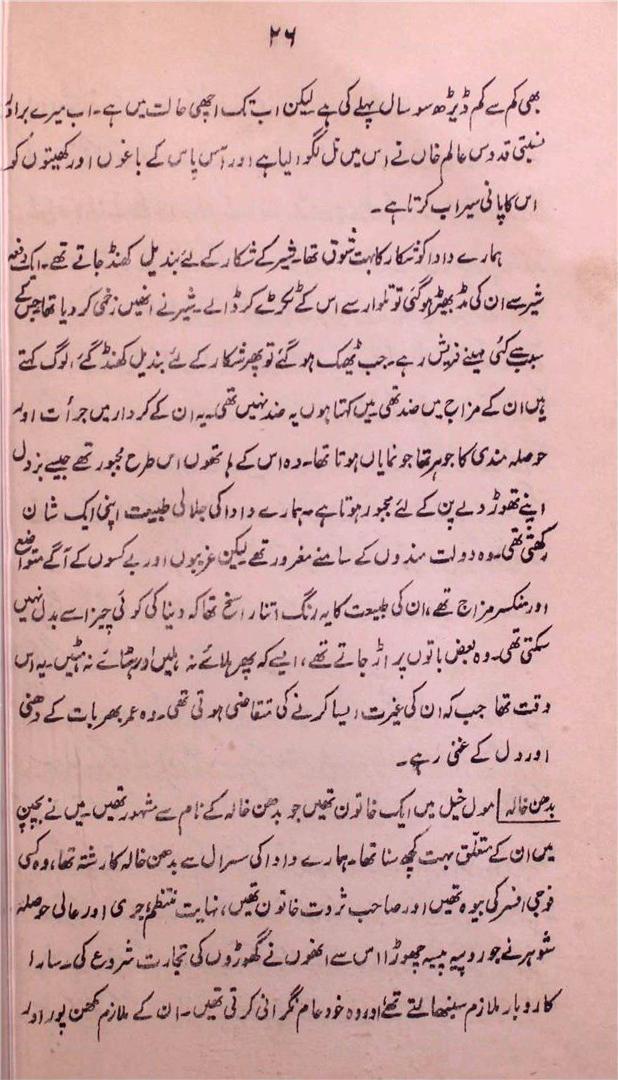 ۲۶
بھی کم سے کم ڈیڑھ سو سال پہلے کی ہے لیکن اب تک اچھی حالت میں ہے۔ اب میرے برادر
نسبتی قدوس عالم خاں نے اس میں نل لگوا لیا ہے اور آس پاس کے باغوں اور کھیتوں کو
اس کا پانی سیراب کرتا ہے۔
ہمارے دادا کو شکار کا بہت شوق تھا۔ شیر کے شکار کے لئے بندیل کھنڈ جاتے تھے۔ ایک دفعہ
شیر سے ان کی مڈ بھیڑ ہو گئی تو تلوار سے اس کے ٹکڑے کر ڈالے۔ شیر نے انھیں زخمی کر دیا تھا جس کے
سبب سے کئی مہینے فریش رہے۔ جب ٹھیک ہو گئے تو پھر شکار کے لئے بندیل کھنڈ گئے۔ لوگ کہتے
ہیں ان کے مزاج میں ضد تھی۔ میں کہتا ہوں یہ ضد نہیں تھی۔ یہ ان کے کردار میں جرأت اور
حوصلہ مندی کا جوہر تھا جو نمایاں ہوتا تھا۔ وہ اس کے ہاتھوں اس طرح مجبور تھے جیسے بزدل
اپنے تھوڑ دلے پن کے لئے مجبور ہوتا ہے۔ ہمارے دادا کی جلالی طبیعت اپنی ایک شان
رکھتی تھی۔ وہ دولت مندوں کے سامنے مغرور تھے لیکن غریبوں اور بے کسوں کے آگے متواضع
اور منکسر مزاج تھے، ان کی طبیعت کا یہ رنگ اتنا راسخ تھا کہ دنیا کی کوئی چیز اسے بدل نہیں
سکتی تھی۔ وہ بعض باتوں پر اڑ جاتے تھے، ایسے کہ پھر ہلائے نہ ہلیں اور ہٹائے نہ ہٹیں۔ یہ اس
وقت تھا جب کہ ان کی غیرت ایسا کرنے کی متقاضی ہوتی تھی۔ وہ عمر بھر بات کے دھنی
اور دل کے غنی رہے۔
بدھن خالہ | مول خیل میں ایک خاتون تھیں جو بدھن خالہ کے نام سے مشہور تھیں۔ میں نے بچپن
میں ان کے متعلق بہت کچھ سنا تھا۔ ہمارے دادا کی سسرال سے بدھن خالہ کا رشتہ تھا، وہ کسی
فوجی افسر کی بیوہ تھیں اور صاحب ثروت خاتون تھیں، نہایت منتظم، جری اور عالی حوصلہ
شوہر نے جو روپیہ پیسہ چھوڑا اس سے انھوں نے گھوڑوں کی تجارت شروع کی۔ سارا
کاروبار ملازم سنبھالتے تھے اور وہ خود عام نگرانی کرتی تھیں۔ ان کے ملازم مکھن پور اور